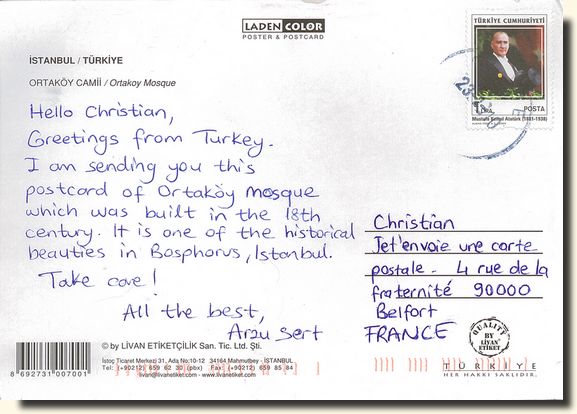 LADEN COLOR
POSTER & POSTCARD
TÜRKİYE CUMHURİYETİ
POSTA
Mustafa Kemal Atatürk (1881-1938)
İSTANBUL / TÜRKİYE
ORTAKÖY CAMİİ / Ortakoy Mosque
Hello Christian,
Greetings from Turkey.
I am sending you this
postcard of Ortaköy mosque
which was built in the 18th
century. It is one of the historical
beauties in Bosphorus, Istanbul.
Take care!
All the best,
Arzu Sert
Christian
Jet'envoie une carte
postale - 4 rue de la
fraternité 90000
Belfort
FRANCE
© by LİVAN ETİKETÇİLİK San. Tic. Ltd. Şti.
İstoç Ticaret Merkezi 31. Ada No:10-12 34164 Mahmutbey - İSTANBUL
Tel: (+90212) 659 62 30 (pbx) Fax: (+90212) 659 85 84
livan@livanetiket.com - www.livanetiket.com
8 692731 007001
QUALITY
BY
LİVAN
ETİKET
TÜRKİYE
HER HAKKI SAKLIDIR.